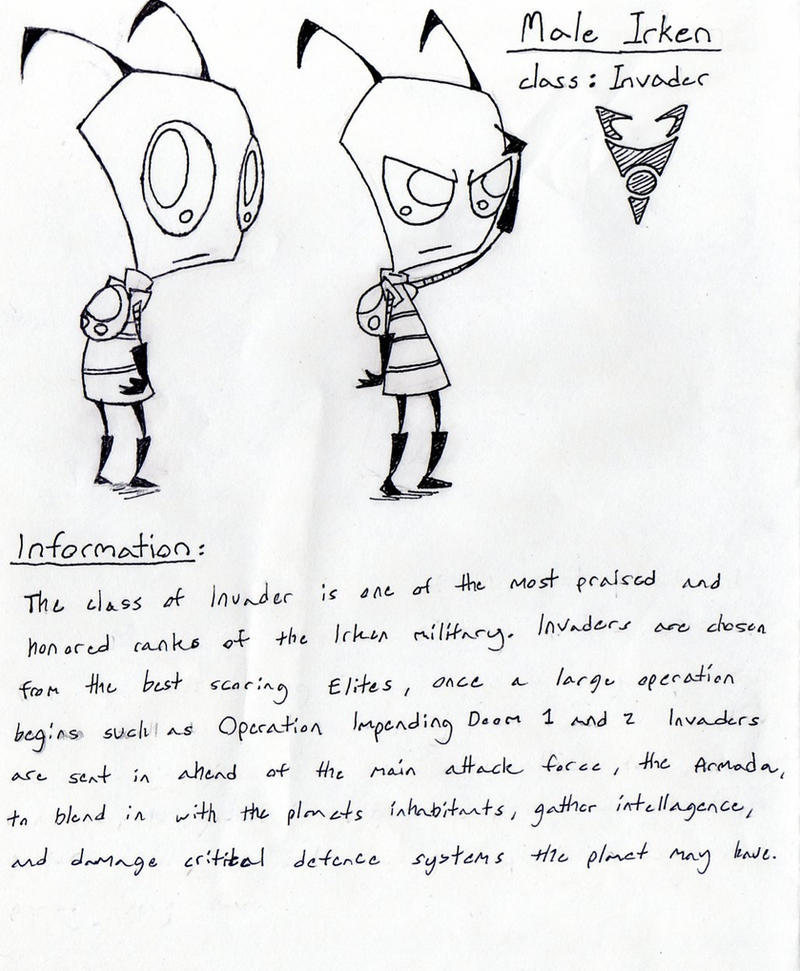 Male Irken
class: Invader
Information:
The class of Invader is one of the most praised and
honored ranks of the Irken military. Invaders are chosen
from the best scoring Elites, once a large operation
begins such as Operation Impending Doom 1 and 2 Invaders
are sent in ahead of the main attack force, the Armada,
to blend in with the planets inhabitants, gather intellagence,
and damage critical defence systems the planet may have.